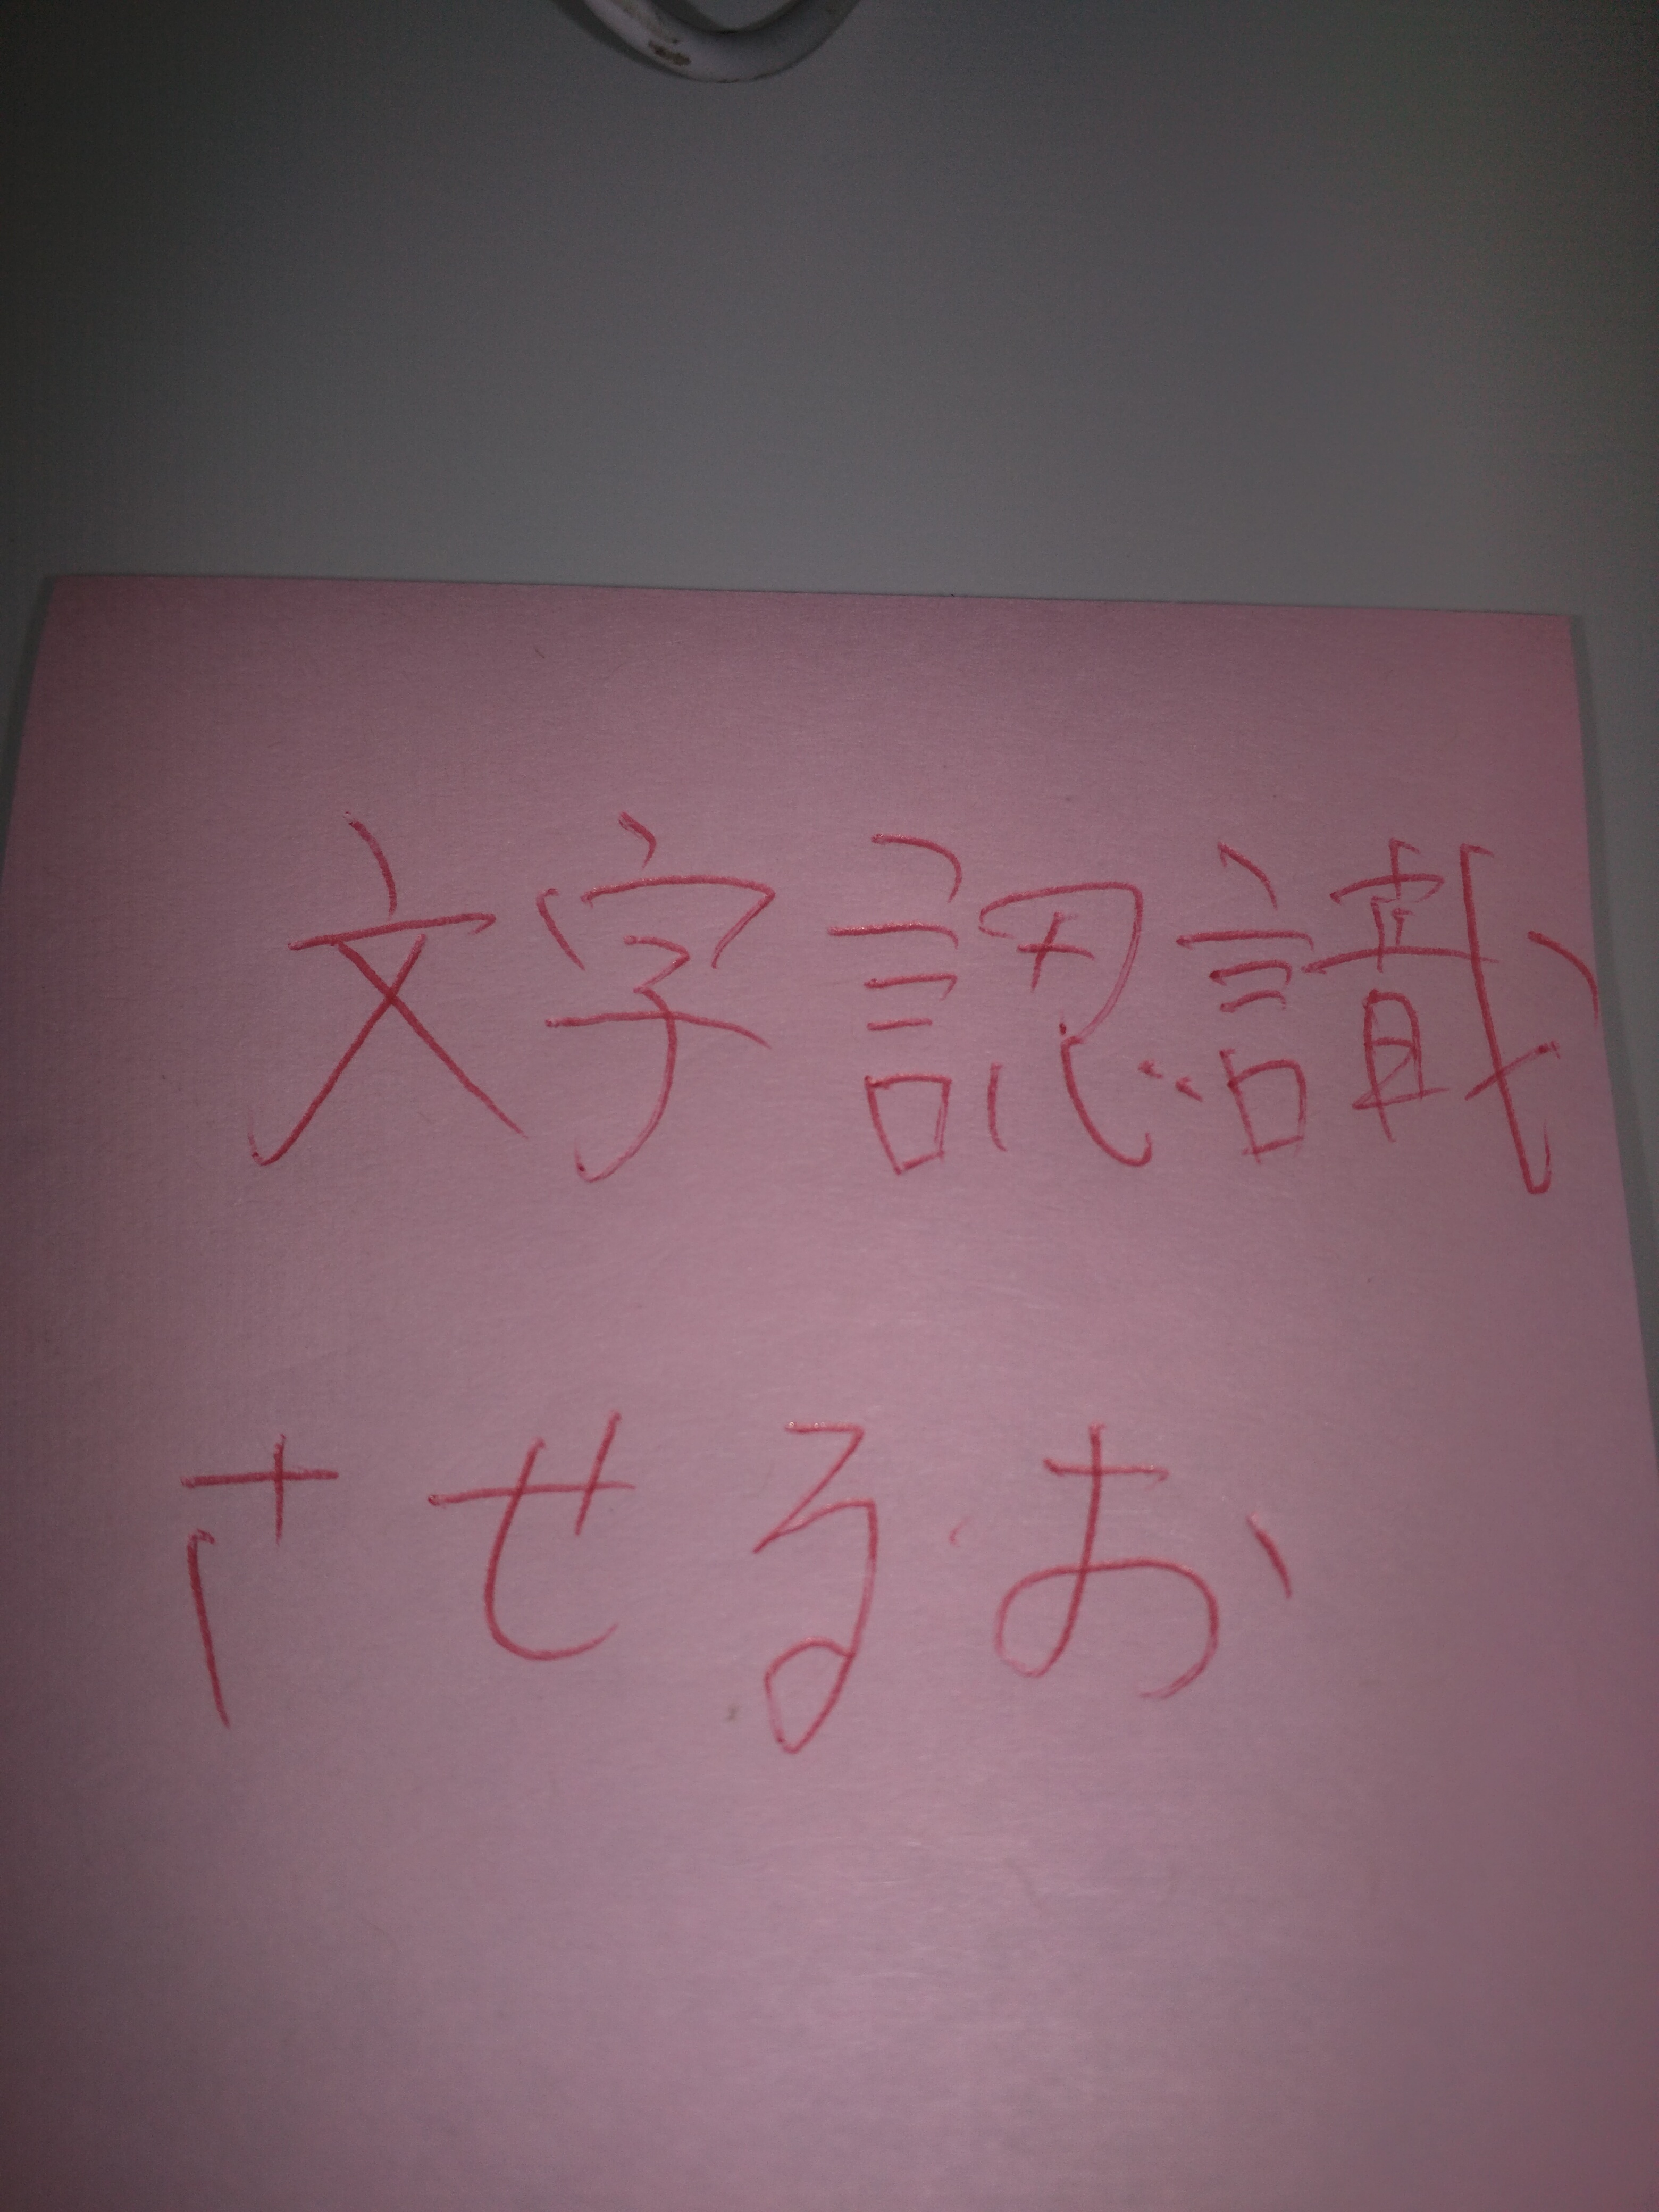 文字認識
させるお